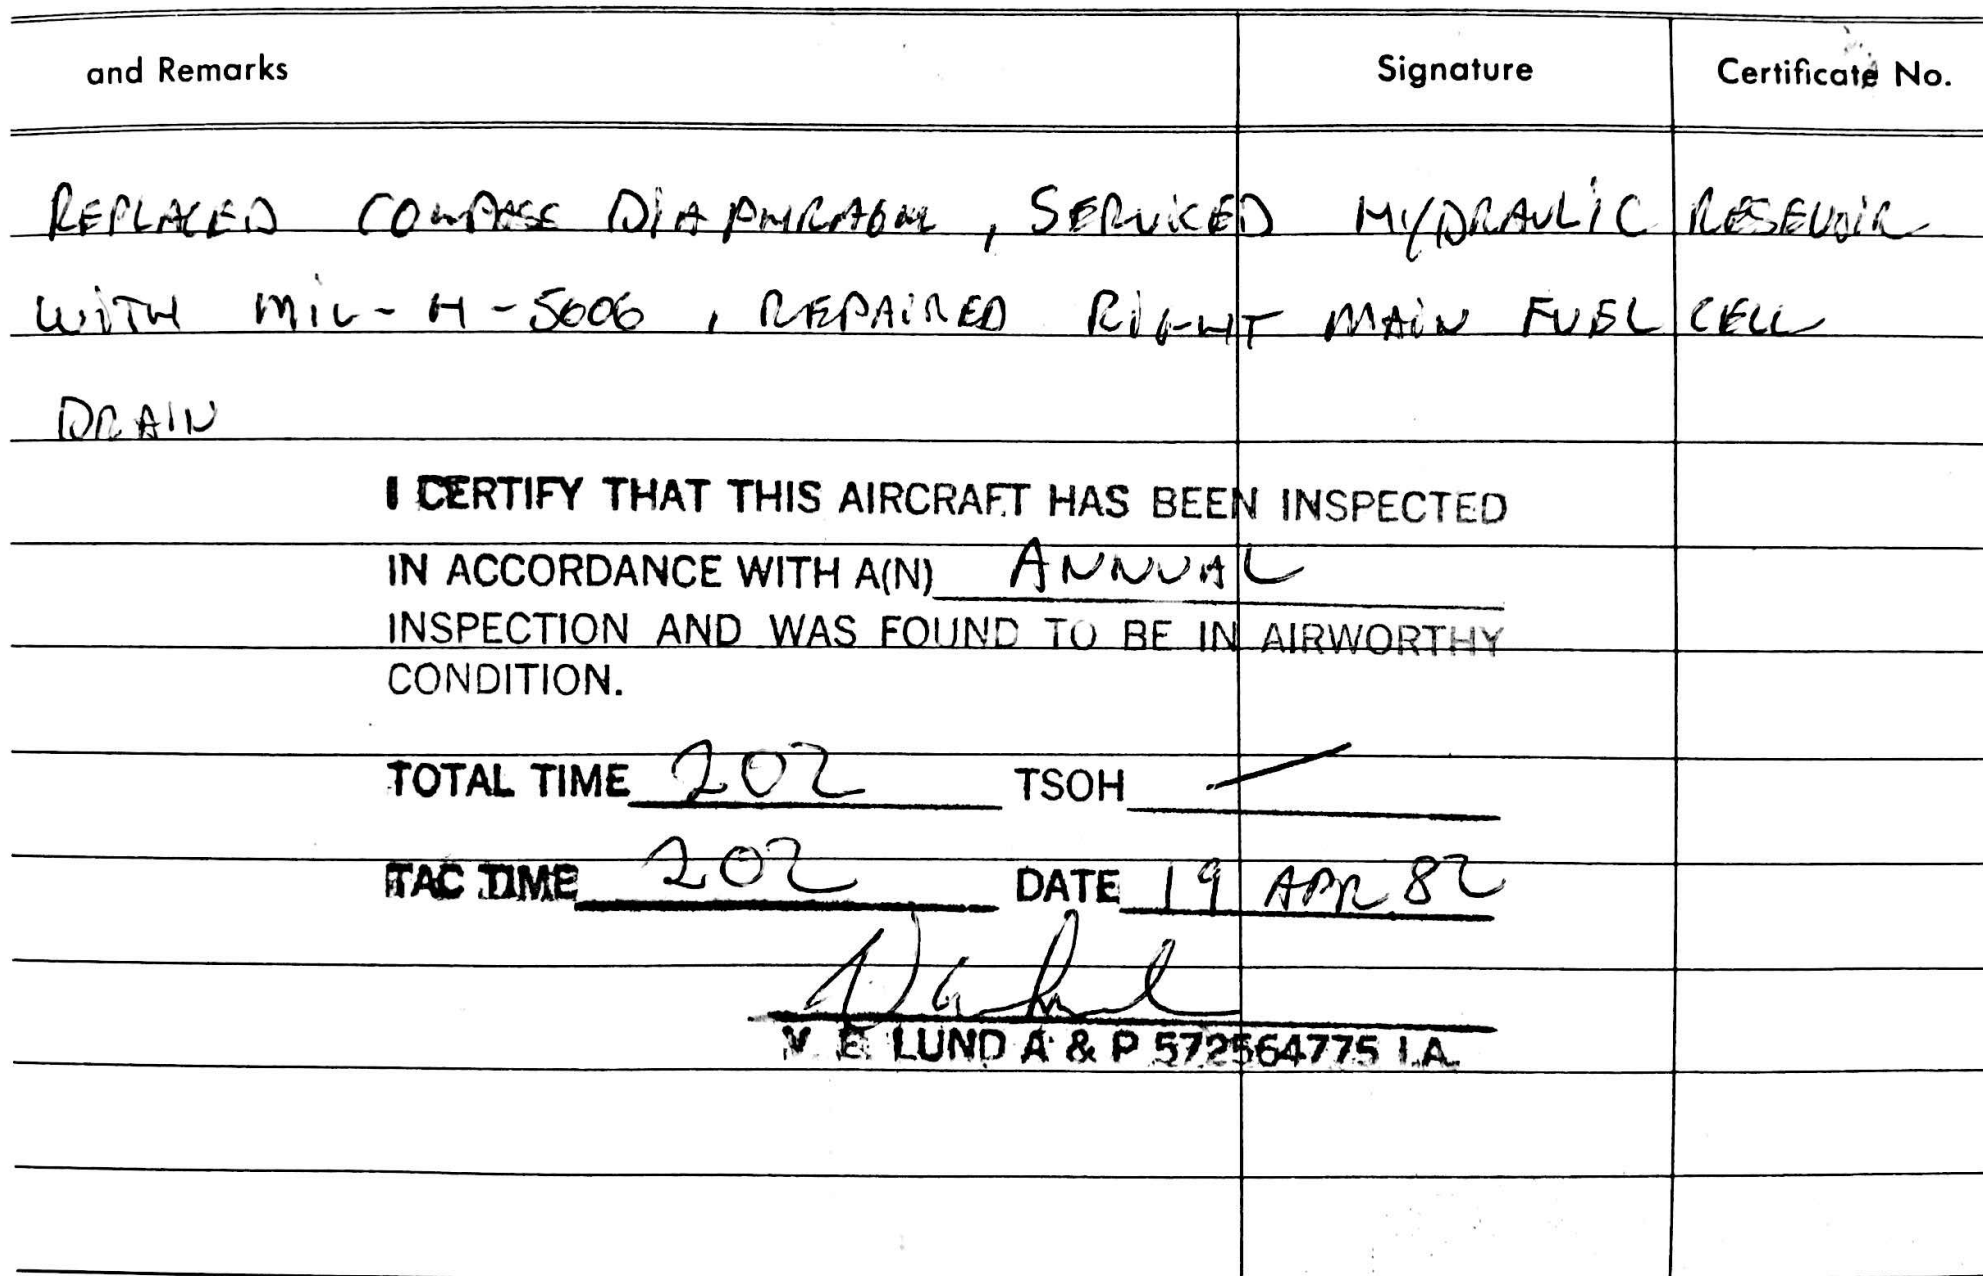 and Remarks Signature Certificate No.
REPLACED COMPASS DIAPHRAGM, SERVICED HYDRAULIC RESEVOIR
WITH MIL-H-5606, REPAIRED RIGHT MAIN FUEL CELL
DRAIN
I CERTIFY THAT THIS AIRCRAFT HAS BEEN INSPECTED
IN ACCORDANCE WITH A(N) ANNUAL
INSPECTION AND WAS FOUND TO BE IN AIRWORTHY
CONDITION.
TOTAL TIME 202 TSOH /
TAC TIME 202 DATE 19 APR 82
V. E. LUND A & P 572564775 I.A.